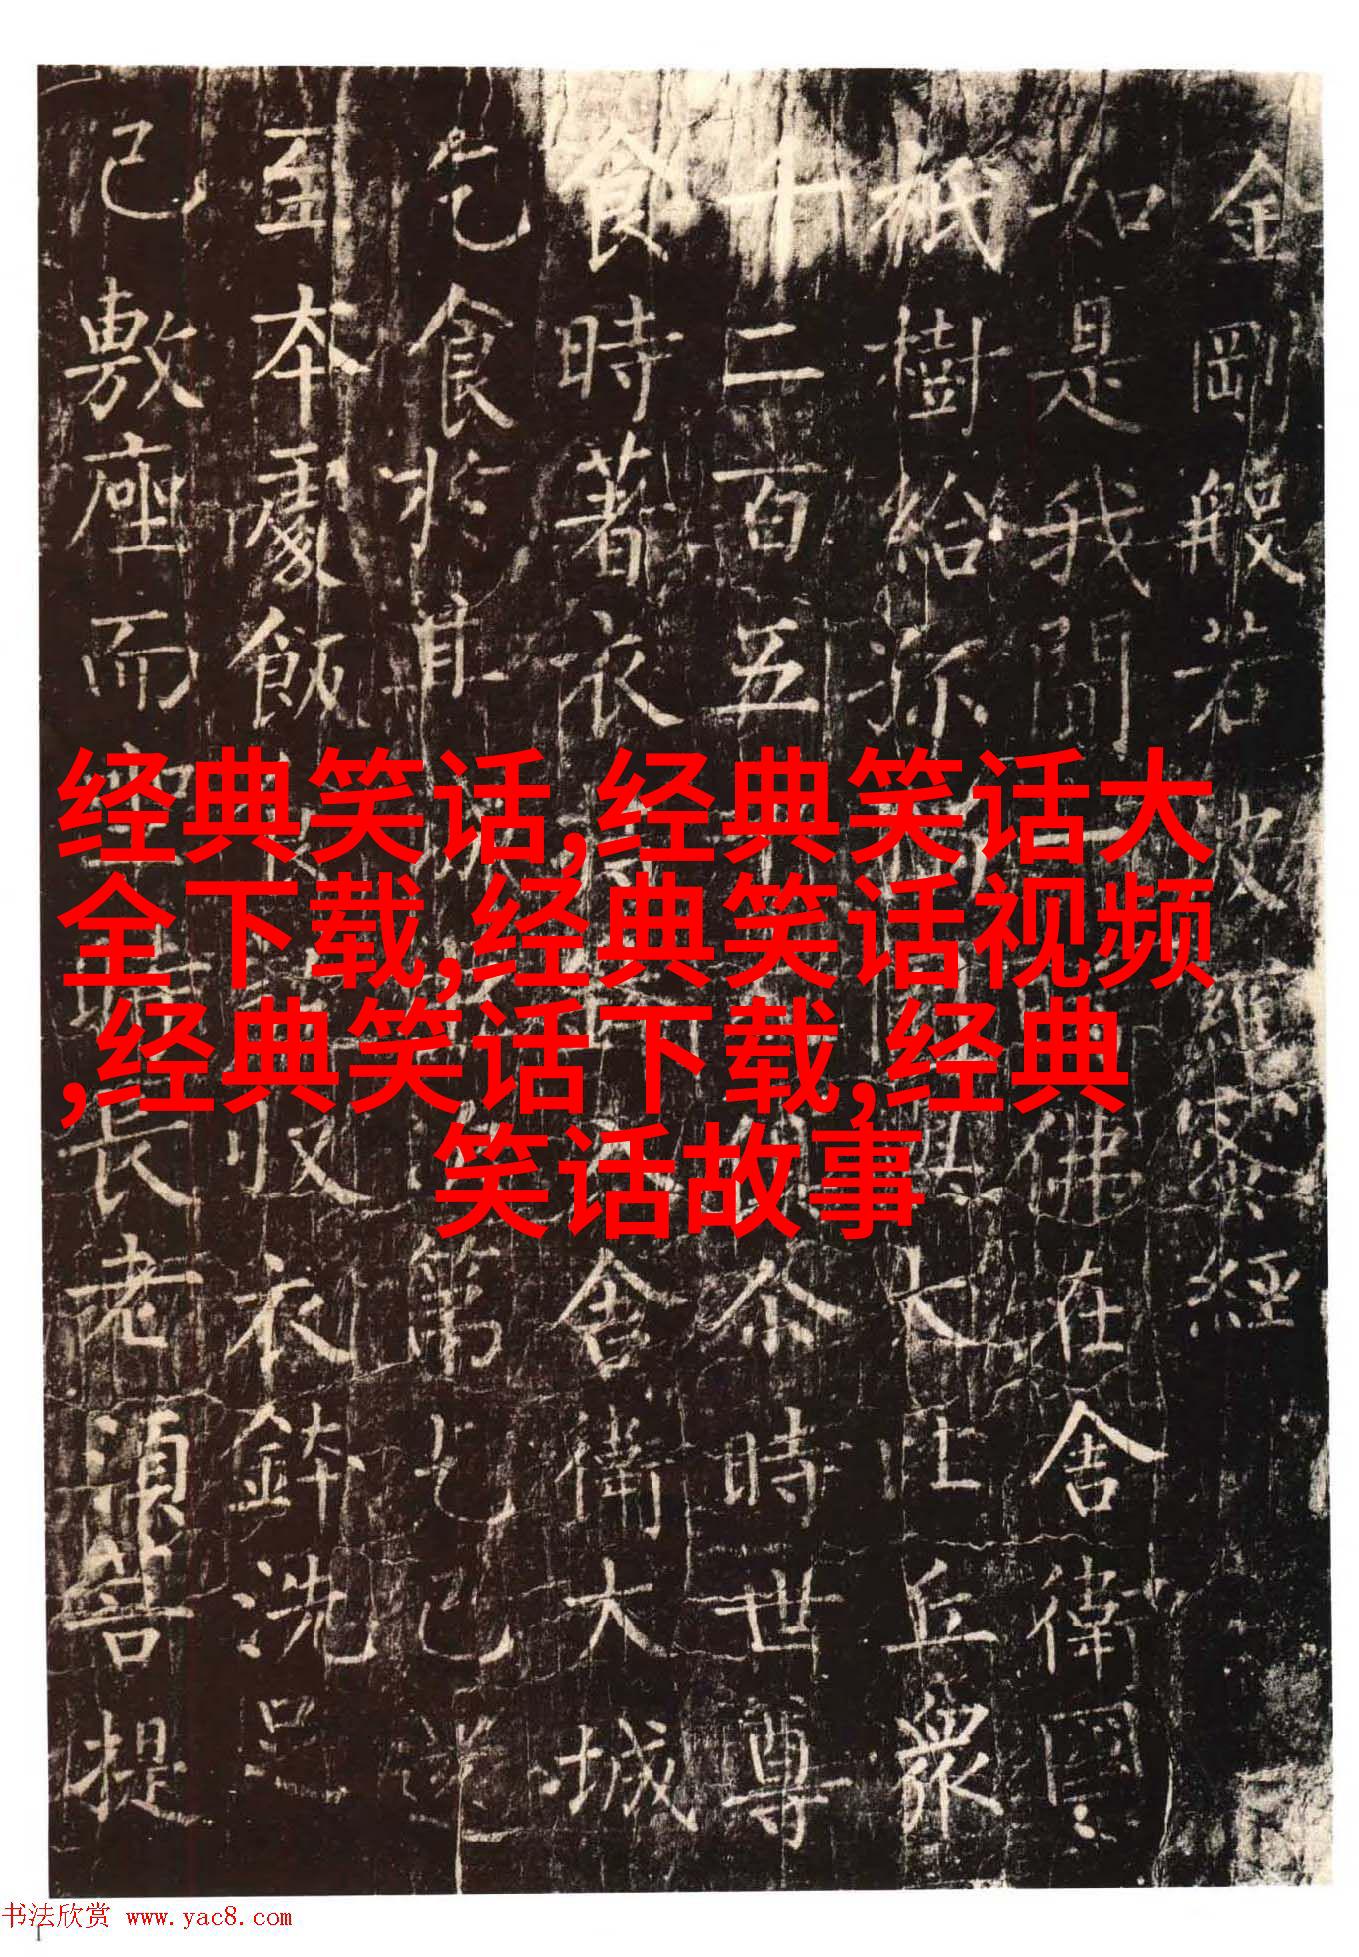 金剛般若波羅蜜經
如是我聞佛在舍衛國
祇樹給孤大比丘衆
十二百五尒時世尊
食時著衣舍衛大城
乞食於其城第乞已還
至本處飯收衣鉢洗足
已敷座而長老須菩提
经典笑话,经典笑话大
全下载,经典笑话视频
,经典笑话下载,经典
笑话故事
书法欣赏 www.yac8.com